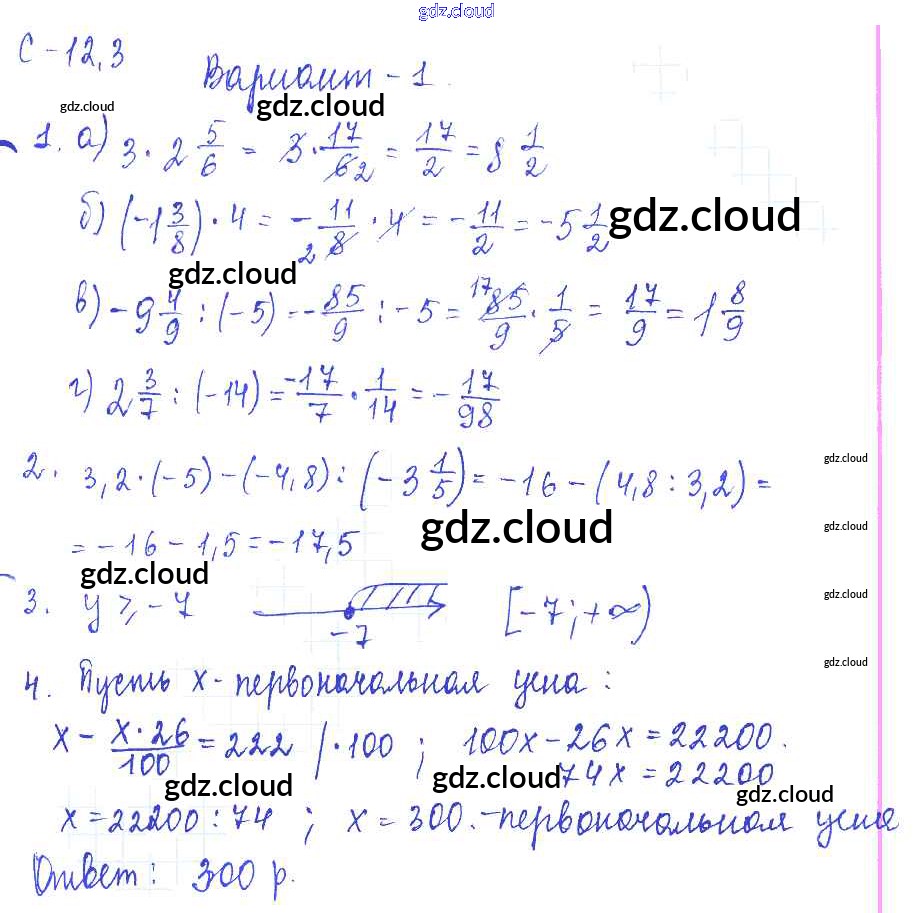 gdz.cloud
С-12,3
Вариант - 1.
gdz.cloud
gdz.cloud
1. а) 3 · 2 5/6 = 3 · 17/6 2 = 17/2 = 8 1/2
б) (-1 3/8) · 4 = - 11/8 2 · 4 = - 11/2 = -5 1/2
gdz.cloud
gdz.cloud
в) -9 4/9 : (-5) = - 85/9 : -5 = 17 85/9 · 1/5 = 17/9 = 1 8/9
г) 2 3/7 : (-14) = -17/7 · 1/14 = - 17/98
gdz.cloud
2. 3,2·(-5) - (-4,8) : (-3 1/5) = -16 - (4,8 : 3,2) =
gdz.cloud
gdz.cloud
= -16 - 1,5 = -17,5
gdz.cloud
gdz.cloud
3. y ⩾ -7 -7 [-7; +∞)
gdz.cloud
4. Пусть х - первоначальная цена :
х - х·26/100 = 222 | ·100 ; 100х - 26х = 22200.
74х = 22200
gdz.cloud
gdz.cloud
gdz.cloud
х = 22200 : 74 ; х = 300. - первоначальная цена
Ответ : 300 р.